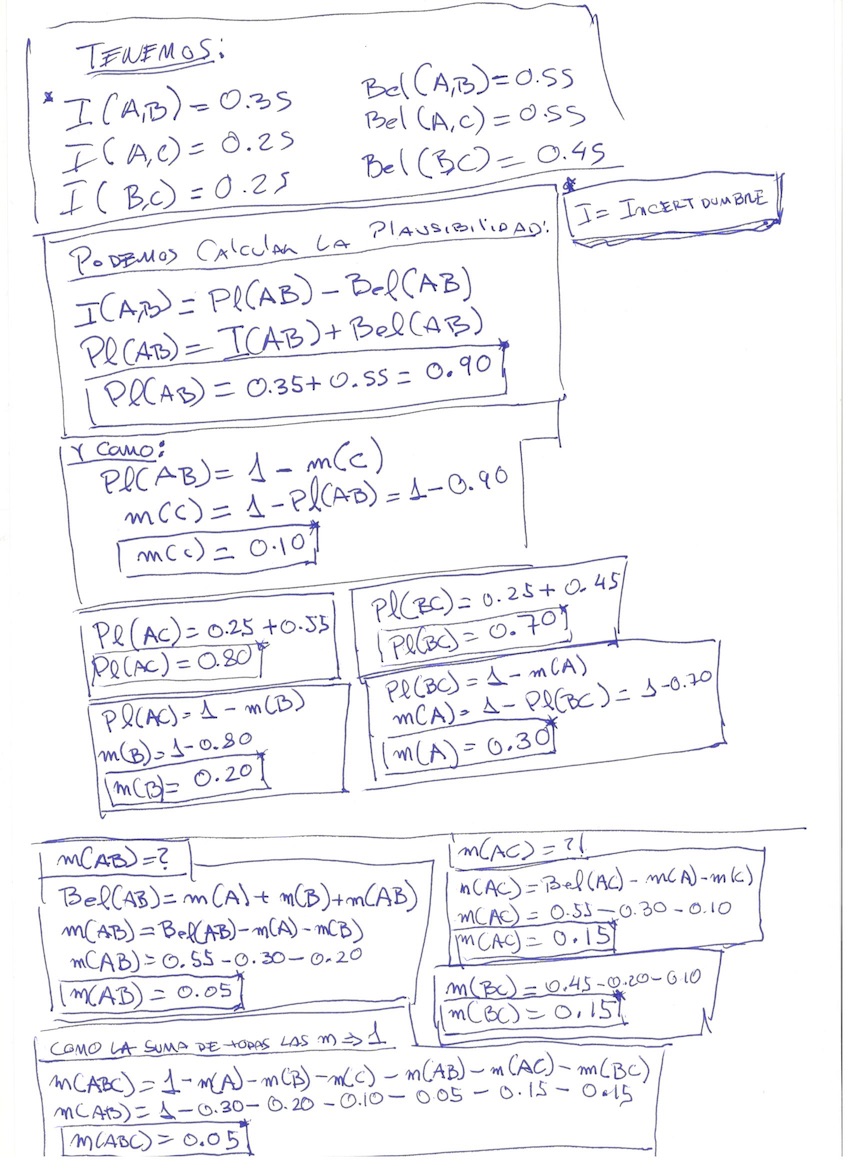 TENEMOS:
* I(A,B) = 0.35 Bel(A,B) = 0.55
I(A,C) = 0.25 Bel(A,C) = 0.55
I(B,C) = 0.25 Bel(BC) = 0.45
* I = INCERTIDUMBRE
PODEMOS CALCULAR LA PLAUSIBILIDAD:
I(A,B) = Pl(AB) - Bel(AB)
Pl(AB) = I(AB) + Bel(AB)
Pl(AB) = 0.35 + 0.55 = 0.90
Y COMO:
Pl(AB) = 1 - m(C)
m(C) = 1 - Pl(AB) = 1 - 0.90
m(C) = 0.10
Pl(AC) = 0.25 + 0.55
Pl(AC) = 0.80
Pl(BC) = 0.25 + 0.45
Pl(BC) = 0.70
Pl(AC) = 1 - m(B)
m(B) = 1 - 0.80
m(B) = 0.20
Pl(BC) = 1 - m(A)
m(A) = 1 - Pl(BC) = 1 - 0.70
m(A) = 0.30
m(AB) = ?
Bel(AB) = m(A) + m(B) + m(AB)
m(AB) = Bel(AB) - m(A) - m(B)
m(AB) = 0.55 - 0.30 - 0.20
m(AB) = 0.05
m(AC) = ?
m(AC) = Bel(AC) - m(A) - m(C)
m(AC) = 0.55 - 0.30 - 0.10
m(AC) = 0.15
m(BC) = 0.45 - 0.20 - 0.10
m(BC) = 0.15
COMO LA SUMA DE TODAS LAS m ⇒ 1
m(ABC) = 1 - m(A) - m(B) - m(C) - m(AB) - m(AC) - m(BC)
m(AB) = 1 - 0.30 - 0.20 - 0.10 - 0.05 - 0.15 - 0.15
m(ABC) = 0.05